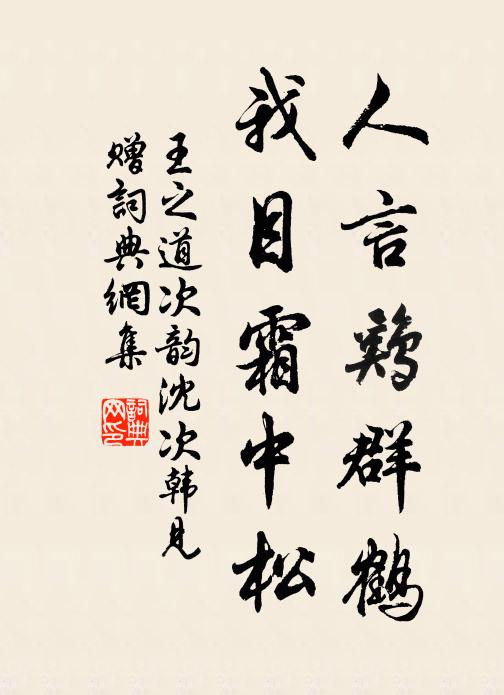 人言鸡群鹤
我目霜中松
王之道次韵沈次韩见
赠詞典網集
詞典
网印